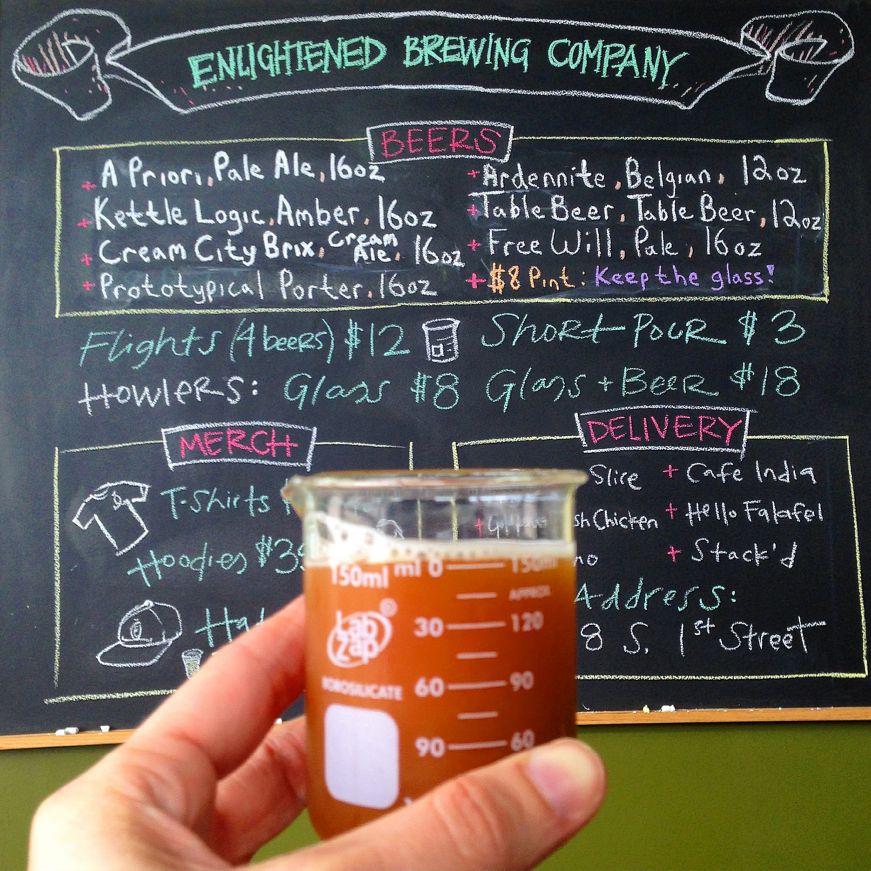 ENLIGHTENED BREWING COMPANY
BEERS
+ A Priori, Pale Ale, 16oz
+ Kettle Logic, Amber, 16oz
+ Cream City Brix, Cream Ale, 16oz
+ Prototypical Porter, 16oz
+ Ardennite, Belgian, 12oz
+ Table Beer, Table Beer, 12oz
+ Free Will, Pale, 16oz
+ $8 Pint: Keep the glass!
Flights (4 beers) $12
Short Pour $3
Howlers: Glass $8 Glass + Beer $18
MERCH
T-Shirts
Hoodies
DELIVERY
Slice + Cafe India
Chicken + Hello Falafel
+ Stack'd
Address:
8 S. 1st Street
150ml ml 0 150ml
APPROX
Lab Zap ®
30 120
BOROSILICATE 60 90
90 60